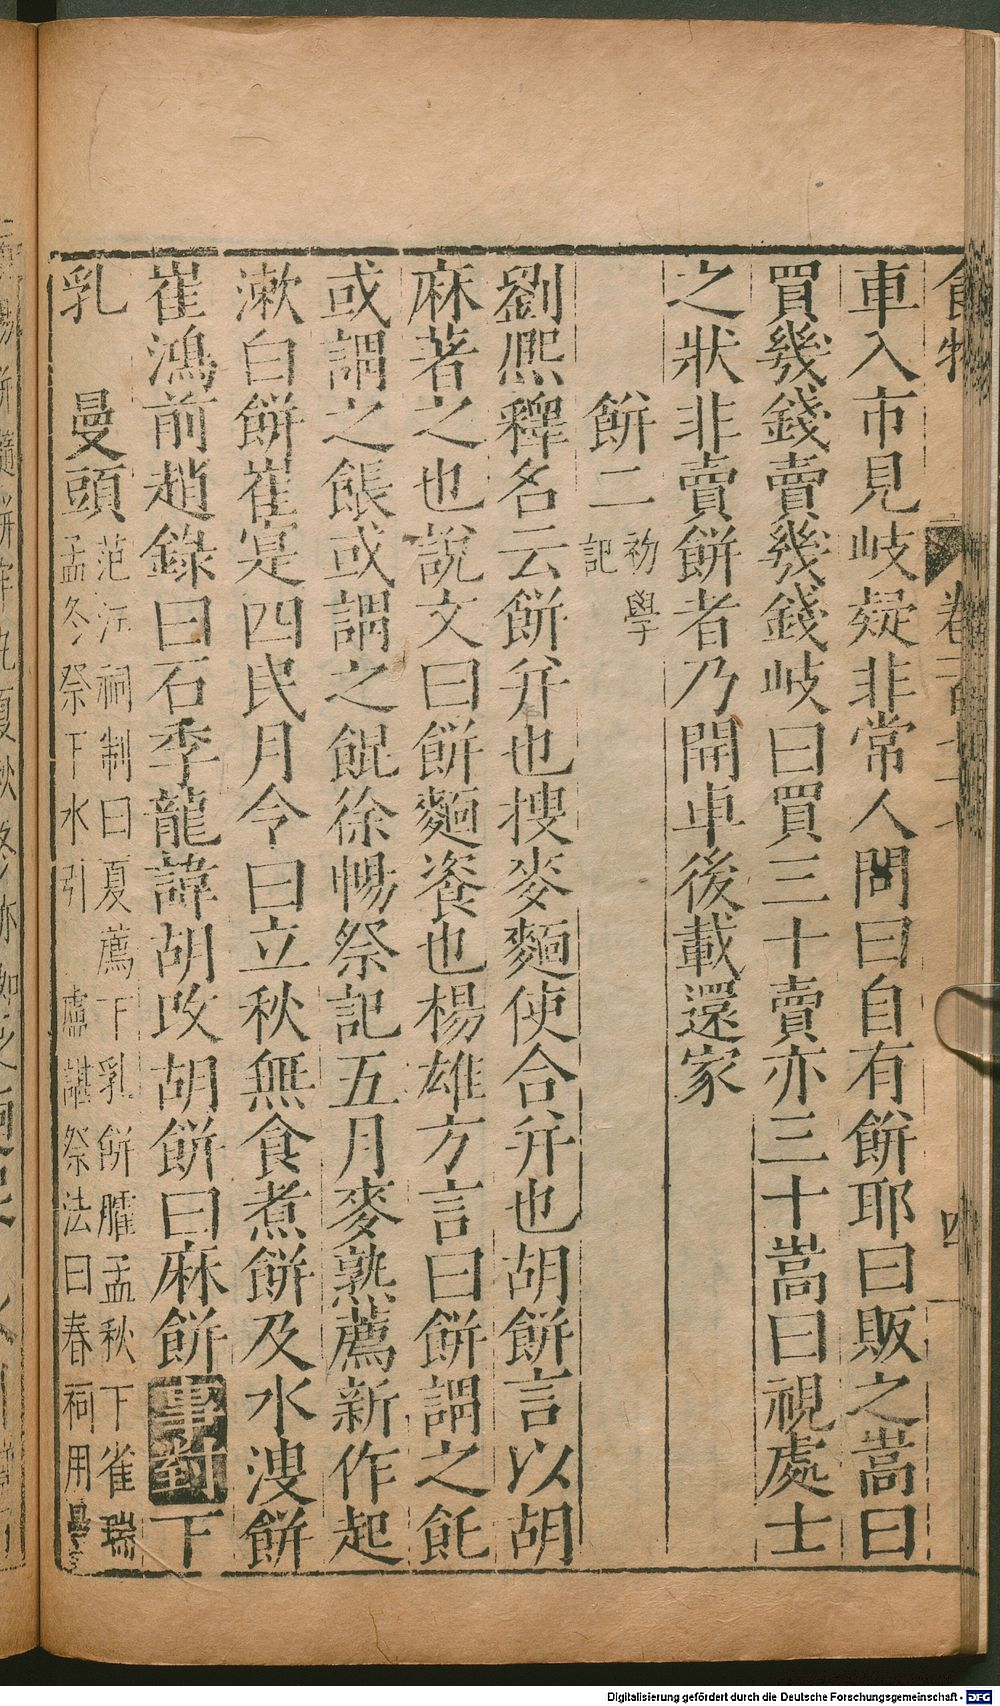 食物
卷
四
車入市見岐疑非常人問曰自有餅耶曰販之嵩曰
買幾錢賣幾錢岐曰買三十賣亦三十嵩曰視處士
之狀非賣餅者乃開車後載還家
餅二 初學記
劉熈釋名云餅并也搜麥麵使合并也胡餅言以胡
麻著之也說文曰餅麵餈也楊雄方言曰餅謂之飥
或謂之餦或謂之餛徐暢祭記五月麥熟薦新作起
漱白餅崔寔四民月令曰立秋無食煮餅及水溲餅
崔鴻前趙錄曰石季龍諱胡改胡餅曰麻餅事對下
乳 曼頭 范汪祠制曰夏薦下乳餅臛孟秋下雀瑞
孟冬祭下水引 盧諶祭法曰春祠用曼
Digitalisierung gefördert durch die Deutsche Forschungsgemeinschaft - DFG